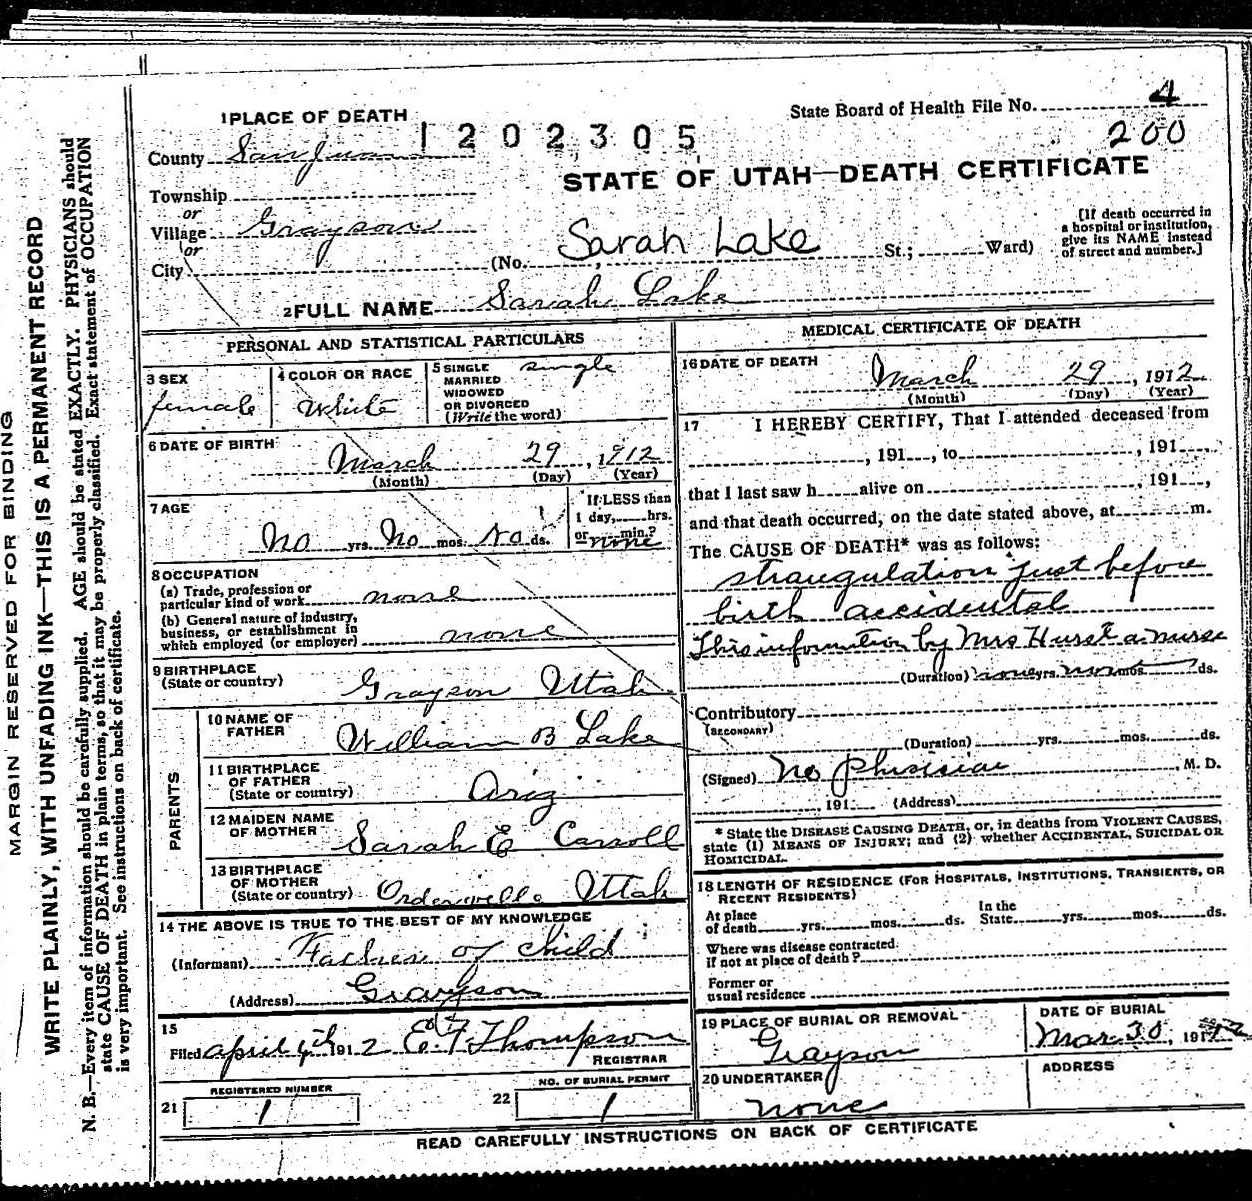 MARGIN RESERVED FOR BINDING
WRITE PLAINLY, WITH UNFADING INK—THIS IS A PERMANENT RECORD
N. B.—Every item of information should be carefully supplied. AGE should be stated EXACTLY. PHYSICIANS should
state CAUSE OF DEATH in plain terms, so that it may be properly classified. Exact statement of OCCUPATION
is very important. See instructions on back of certificate.
1 PLACE OF DEATH
1202305
State Board of Health File No. 4
200
County San Juan
STATE OF UTAH—DEATH CERTIFICATE
Township
or
Village Grayson
or
City
(No. Sarah Lake St.; Ward)
[If death occurred in
a hospital or institution,
give its NAME instead
of street and number.]
2 FULL NAME Sarah Lake
PERSONAL AND STATISTICAL PARTICULARS
3 SEX
female
4 COLOR OR RACE
White
5 SINGLE
MARRIED
WIDOWED
OR DIVORCED
(Write the word)
single
6 DATE OF BIRTH
March 29, 1912
(Month) (Day) (Year)
7 AGE
No yrs. No mos. No ds.
If LESS than
1 day, hrs.
or min.?
none
8 OCCUPATION
(a) Trade, profession or
particular kind of work none
(b) General nature of industry,
business, or establishment in
which employed (or employer) none
9 BIRTHPLACE
(State or country)
Grayson Utah
PARENTS
10 NAME OF
FATHER
William B Lake
11 BIRTHPLACE
OF FATHER
(State or country)
Ariz
12 MAIDEN NAME
OF MOTHER
Sarah E Carroll
13 BIRTHPLACE
OF MOTHER
(State or country)
Orderville Utah
14 THE ABOVE IS TRUE TO THE BEST OF MY KNOWLEDGE
(Informant) Father of child
(Address) Grayson
15
Filed april 4th 1912 E. F. Thompson
REGISTRAR
REGISTERED NUMBER
21 1
NO. OF BURIAL PERMIT
22 1
MEDICAL CERTIFICATE OF DEATH
16 DATE OF DEATH
March 29, 1912
(Month) (Day) (Year)
17 I HEREBY CERTIFY, That I attended deceased from
, 191 , to , 191
that I last saw h alive on , 191 ,
and that death occurred, on the date stated above, at m.
The CAUSE OF DEATH* was as follows:
straugulation just before
birth accidental
This information by Mrs Hurst a nurse
(Duration) none yrs. none mos. ds.
Contributory
(SECONDARY)
(Duration) yrs. mos. ds.
(Signed) No phisician, M. D.
, 191 (Address)
* State the DISEASE CAUSING DEATH, or, in deaths from VIOLENT CAUSES,
state (1) MEANS OF INJURY; and (2) whether ACCIDENTAL, SUICIDAL OR
HOMICIDAL.
18 LENGTH OF RESIDENCE (FOR HOSPITALS, INSTITUTIONS, TRANSIENTS, OR
RECENT RESIDENTS)
At place
of death yrs. mos. ds.
In the
State yrs. mos. ds.
Where was disease contracted
if not at place of death?
Former or
usual residence
19 PLACE OF BURIAL OR REMOVAL
Grayson
DATE OF BURIAL
Mar 30, 1912
20 UNDERTAKER
none
ADDRESS
READ CAREFULLY INSTRUCTIONS ON BACK OF CERTIFICATE